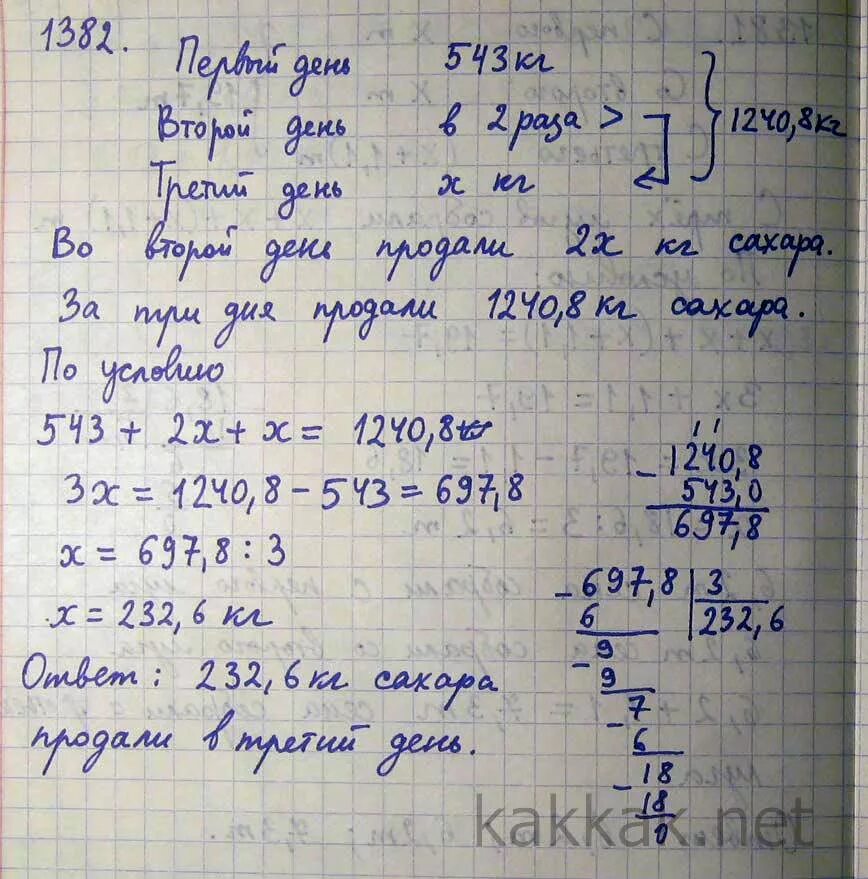 1382.
Первый день 543 кг
Второй день в 2 раза > 1240,8 кг
Третий день x кг
Во второй день продали 2x кг сахара.
За три дня продали 1240,8 кг сахара.
По условию
543 + 2x + x = 1240,8
3x = 1240,8 - 543 = 697,8
x = 697,8 : 3
x = 232,6 кг
Ответ: 232,6 кг сахара
продали в третий день.
- 1240,8
543,0
697,8
- 697,8 | 3
6 232,6
- 9
9
- 7
6
- 18
18
0
kakkak.net